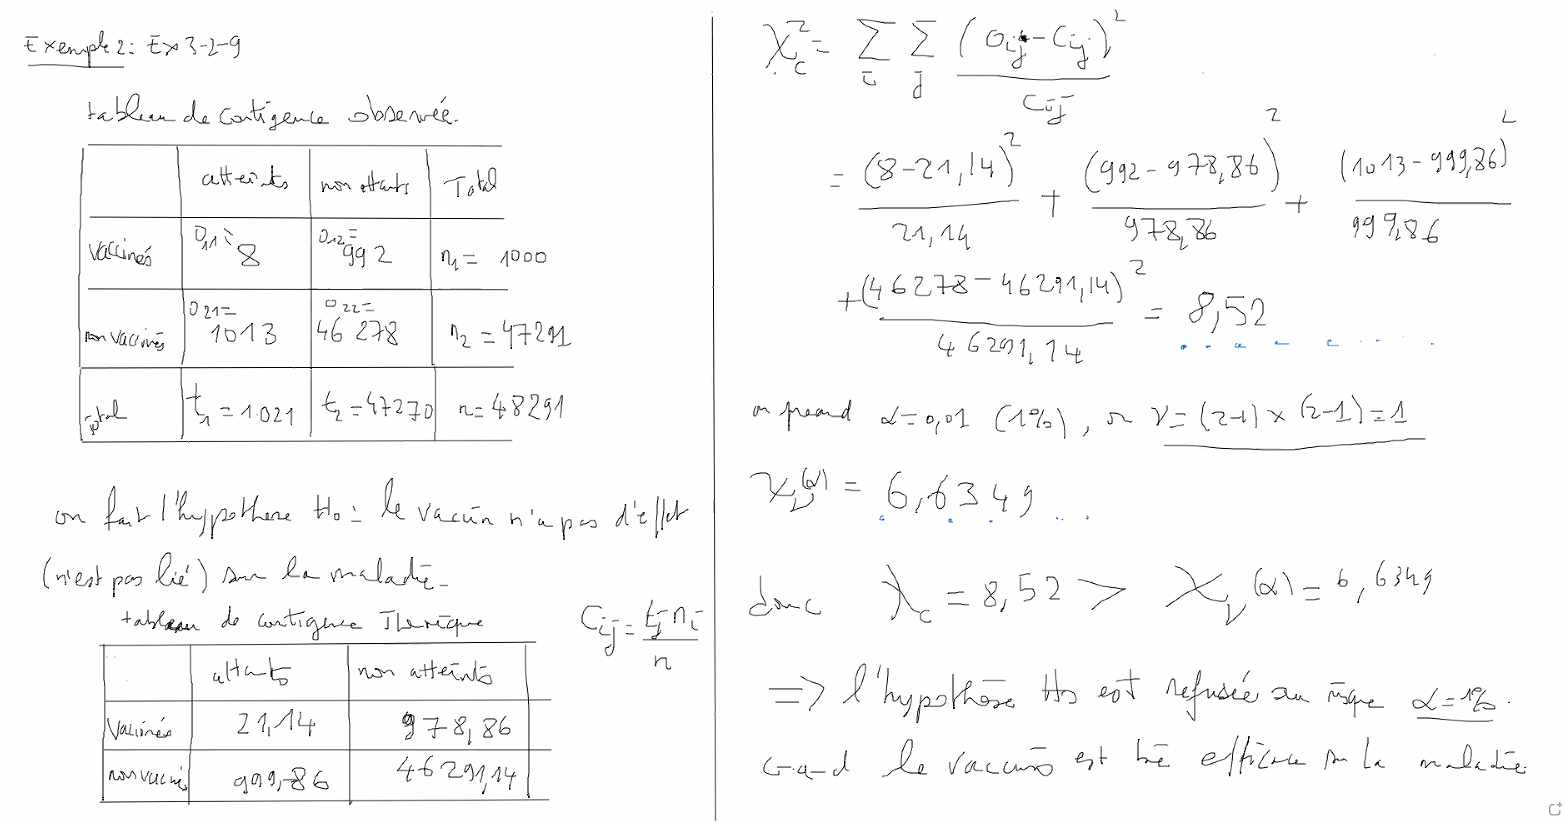 Exemple 2: Ex 3-2-9
tableau de contigence observée.
atteints non atteints Total
vaccinés O11= 8 O12= 992 n1 = 1000
non vaccinés O21= 1013 O22= 46 278 n2 = 47291
total t1 = 1021 t2 = 47270 n = 48291
on fait l'hypothèse H0: le vaccin n'a pas d'effet
(n'est pas lié) sur la maladie.
tableau de contigence Théorique
Cij = tj ni / n
atteints non atteints
Vaccinés 21,14 978,86
non vaccinés 999,86 46291,14
χ²c = Σi Σj (Oij - Cij)² / Cij
= (8-21,14)² / 21,14 + (992-978,86)² / 978,86 + (1013-999,86)² / 999,86
+ (46278-46291,14)² / 46291,14 = 8,52
on prend α=0,01 (1%), or ν=(2-1)×(2-1)=1
χν(α) = 6,6349
donc χc = 8,52 > χν(α) = 6,6349
=> l'hypothèse H0 est refusée au risque α=1%.
c-a-d le vaccin est trè efficace sur la maladie.